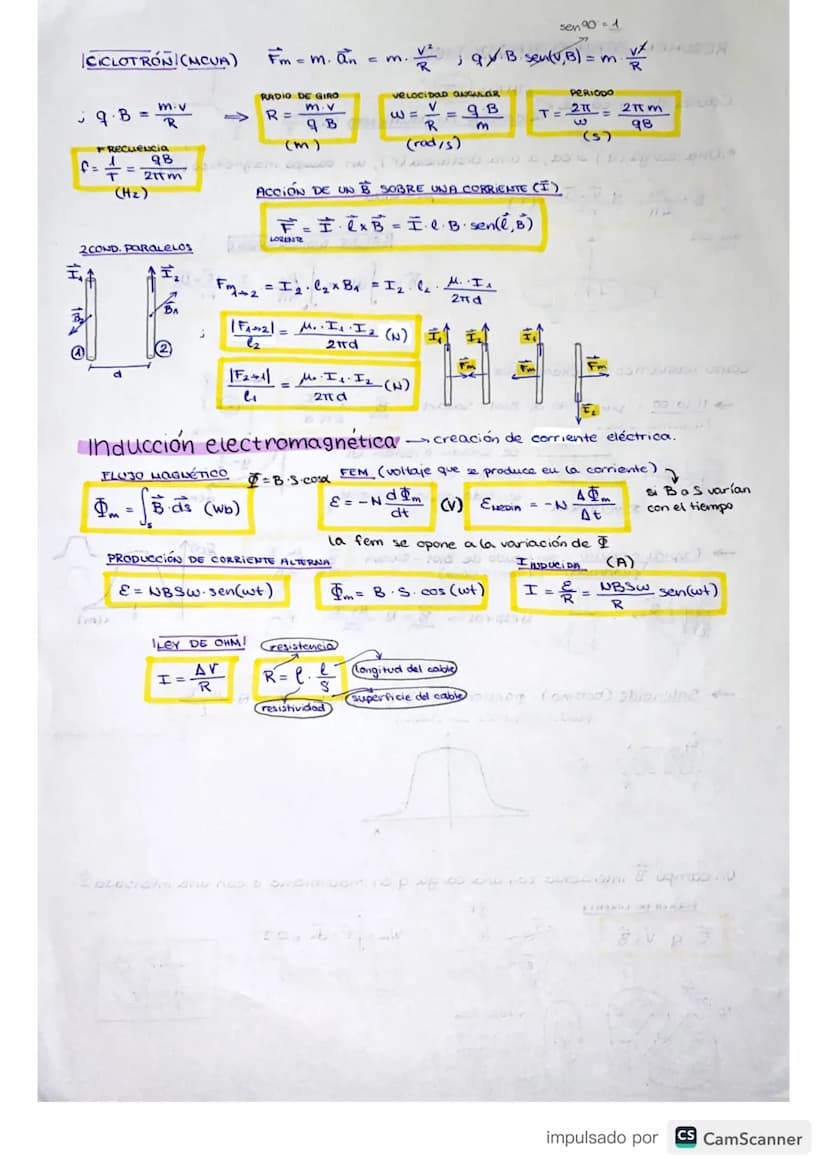 sen90 = 1
CICLOTRÓN (MCUA) F⃗m = m · a⃗n = m · v²/R ; q v · B · sen(v,B) = m · v²/R
; q · B = m·v/R ⟹ RADIO DE GIRO R = m·v/q B (m) VELOCIDAD ANGULAR ω = v/R = q·B/m (rad/s) PERIODO T = 2π/ω = 2πm/qB (s)
FRECUENCIA f = 1/T = qB/2πm (Hz)
ACCIÓN DE UN B⃗ SOBRE UNA CORRIENTE (I⃗)
F⃗ = I⃗ · l⃗ x B⃗ = I⃗ · l · B · sen(l⃗,B⃗)
LORENTZ
2 COND. PARALELOS
I⃗₁ I⃗₂ B⃗₂ B⃗₁ ① ② d
Fm₁→₂ = I₂ · l₂ x B₁ = I₂ · l₂ · μ₀ · I₁/2πd
; |F₁→₂|/l₂ = μ₀ · I₁ · I₂/2πd (N)
|F₂→₁|/l₁ = μ₀ · I₁ · I₂/2πd (N)
I⃗₁ I⃗₂ F⃗m I⃗₁ F⃗m F⃗m I⃗₂
Inducción electromagnética → creación de corriente eléctrica.
FLUJO MAGNÉTICO Φ = B · S · cosα FEM (voltaje que se produce en la corriente)
Φ⃗m = ∫s B⃗ · ds⃗ (Wb) ε = -N dΦm/dt (V) εMEDIA = -N ΔΦm/Δt
si B o S varían
con el tiempo
la fem se opone a la variación de Φ
PRODUCCIÓN DE CORRIENTE ALTERNA I INDUCIDA (A)
ε = NBSω · sen(ωt) Φm = B · S · cos(ωt) I = ε/R = NBSω/R sen(ωt)
LEY DE OHM resistencia
I = ΔV/R R = ρ · l/S longitud del cable
superficie del cable
resistividad
impulsado por CS CamScanner